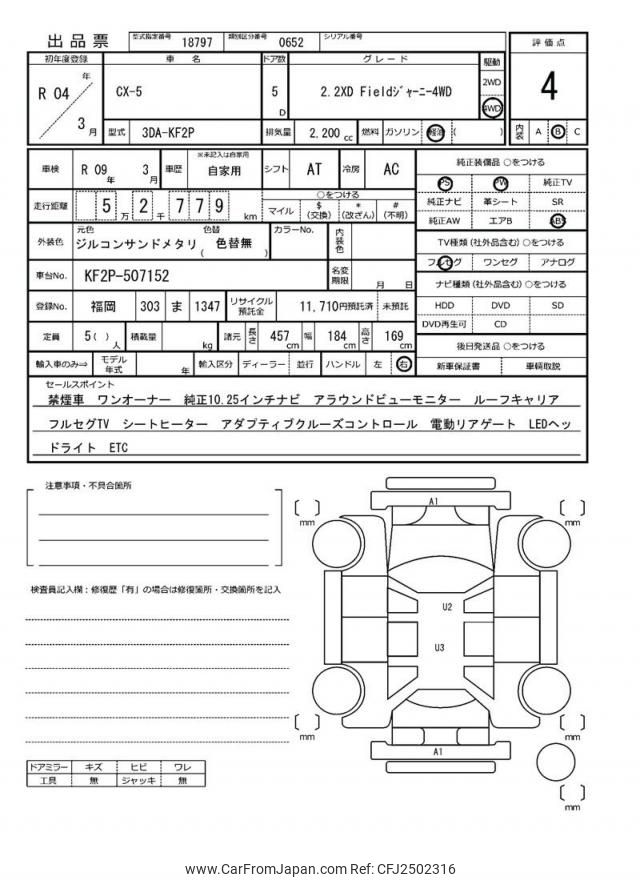 出品票 型式指定番号 18797 類別区分番号 0652 シリアル番号
初年度登録 車名 ドア数 グレード 駆動 評価点
R 04 年 3 月 CX-5 5 D 2.2XD Fieldジャーニー4WD 2WD 4WD 4
型式 3DA-KF2P 排気量 2,200 cc 燃料 ガソリン 軽油 ( ) 内装 A B C
車検 R 09 年 3 月 車歴 ※未記入は自家用 自家用 シフト AT 冷房 AC
走行距離 5 万 2 千 7 7 9 km ○をつける マイル $ (交換) * (改ざん) # (不明)
外装色 元色 ジルコンサンドメタリ 色替 ( 色替無 ) カラーNo. 内装色
車台No. KF2P-507152 名変期限 月 日
登録No. 福岡 303 ま 1347 リサイクル預託金 11,710円預託済 未預託
定員 5( ) 人 積載量 kg 諸元 長さ 457 cm 幅 184 cm 高さ 169 cm
輸入車のみ⇒ モデル年式 年 輸入区分 ディーラー 並行 ハンドル 左 右
純正装備品 ○をつける
PS PW 純正TV
純正ナビ 革シート SR
純正AW エアB ABS
TV種類(社外品含む)○をつける
フルセグ ワンセグ アナログ
ナビ種類(社外品含む)○をつける
HDD DVD SD
DVD再生可 CD
後日発送品 ○をつける
新車保証書 車輌取説
セールスポイント
禁煙車 ワンオーナー 純正10.25インチナビ アラウンドビューモニター ルーフキャリア
フルセグTV シートヒーター アダプティブクルーズコントロール 電動リアゲート LEDヘッ
ドライト ETC
注意事項・不具合箇所
検査員記入欄:修復歴「有」の場合は修復箇所・交換箇所を記入
ドアミラー キズ ヒビ ワレ
工具 無 ジャッキ 無
[ ] mm
A1
[ ] mm
U2
U3
[ ] mm
A1
[ ] mm
[ ] mm
www.CarFromJapan.com Ref: CFJ2502316